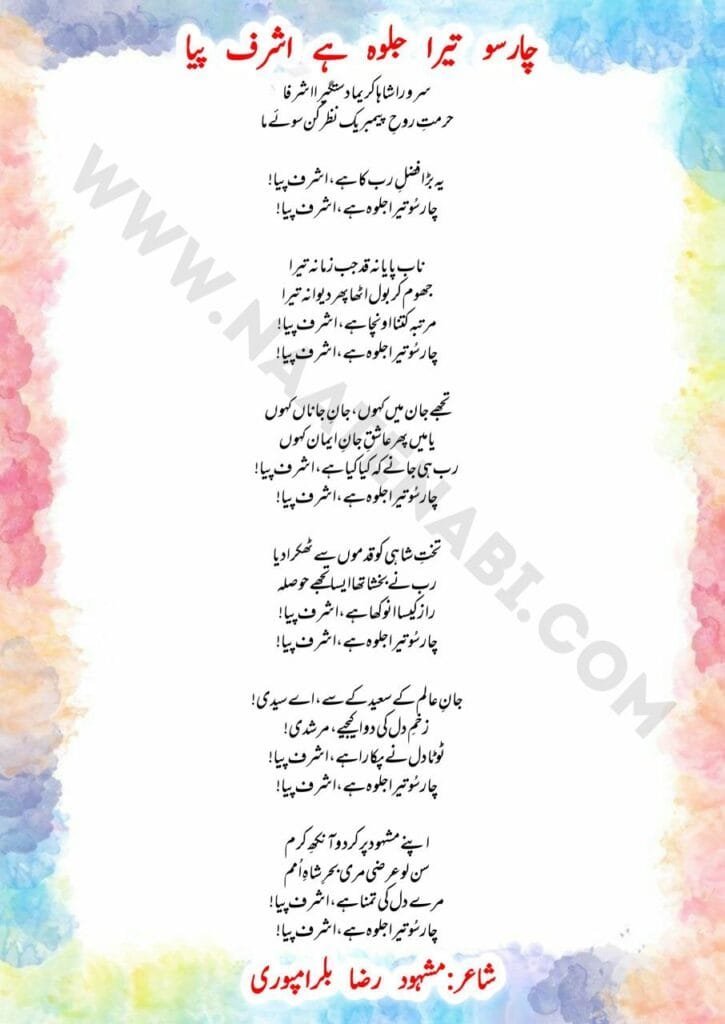 چارسو تیرا جلوہ ہے اشرف پیا
سرورا شاہا کریما دستگیرا اشرفا
حرمتِ روحِ پیمبر یک نظر کن سوئے ما
یہ بڑا فضلِ رب کا ہے، اشرف پیا!
چار سُو تیرا جلوہ ہے، اشرف پیا!
ناپ پایا نہ قد جب زمانہ تیرا
جھوم کر بول اٹھا پھر دیوانہ تیرا
مرتبہ کتنا اونچا ہے، اشرف پیا!
چار سُو تیرا جلوہ ہے، اشرف پیا!
تجھے جان میں کہوں، جانِ جاناں کہوں
یا میں پھر عاشقِ جانِ ایمان کہوں
رب ہی جانے کہ کیا کیا ہے، اشرف پیا!
چار سُو تیرا جلوہ ہے، اشرف پیا!
تختِ شاہی کو قدموں سے ٹھکرا دیا
رب نے بخشا تھا ایسا تجھے حوصلہ
راز کیسا انوکھا ہے، اشرف پیا!
چار سُو تیرا جلوہ ہے، اشرف پیا!
جانِ عالم کے سعید کے سے، اے سیدی!
زخمِ دل کی دوا کیجیے، مرشدی!
ٹوٹا دل نے پکارا ہے، اشرف پیا!
چار سُو تیرا جلوہ ہے، اشرف پیا!
اپنے مشہود پر کر دو آنکھِ کرم
سن لو عرضی مری بحرِ شاہِ اُمم
مرے دل کی تمنا ہے، اشرف پیا!
چار سُو تیرا جلوہ ہے، اشرف پیا!
شاعر:مشہود رضا بلرامپوری
WWW.NAATENABI.COM